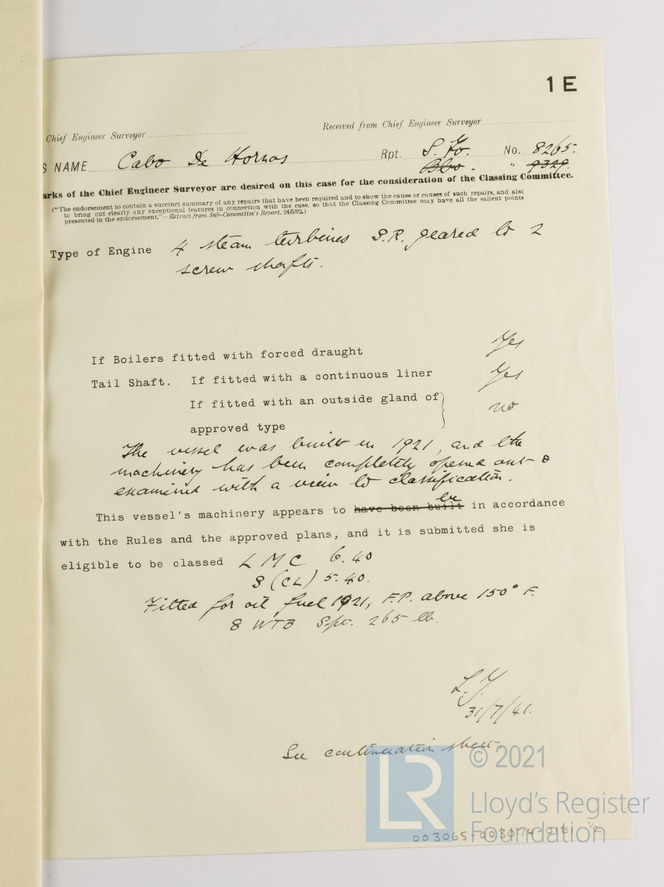 1 E
Chief Engineer Surveyor
Received from Chief Engineer Surveyor
S NAME Cabo De Hornos Rpt. S. Fo. No. 8265.
Bbo. " 9329.
arks of the Chief Engineer Surveyor are desired on this case for the consideration of the Classing Committee.
("The endorsement to contain a succinct summary of any repairs that have been required and to show the cause or causes of such repairs, and also
to bring out clearly any exceptional features in connection with the case, so that the Classing Committee may have all the salient points
presented in the endorsement."—Extract from Sub-Committee's Report, 24/5/92.)
Type of Engine 4 steam turbines S.R. geared to 2
screw shafts.
If Boilers fitted with forced draught Yes
Tail Shaft. If fitted with a continuous liner Yes
If fitted with an outside gland of
approved type } no
The vessel was built in 1921, and the
machinery has been completely opened out &
examined with a view to classification.
be
This vessel's machinery appears to have been built in accordance
with the Rules and the approved plans, and it is submitted she is
eligible to be classed L M C 6.40
S (CL) 5.40.
Fitted for oil fuel 1921, F.P. above 150° F.
8 WTB Spr. 265 lb.
31/7/41.
See continuation sheet
LR © 2021
Lloyd's Register
Foundation